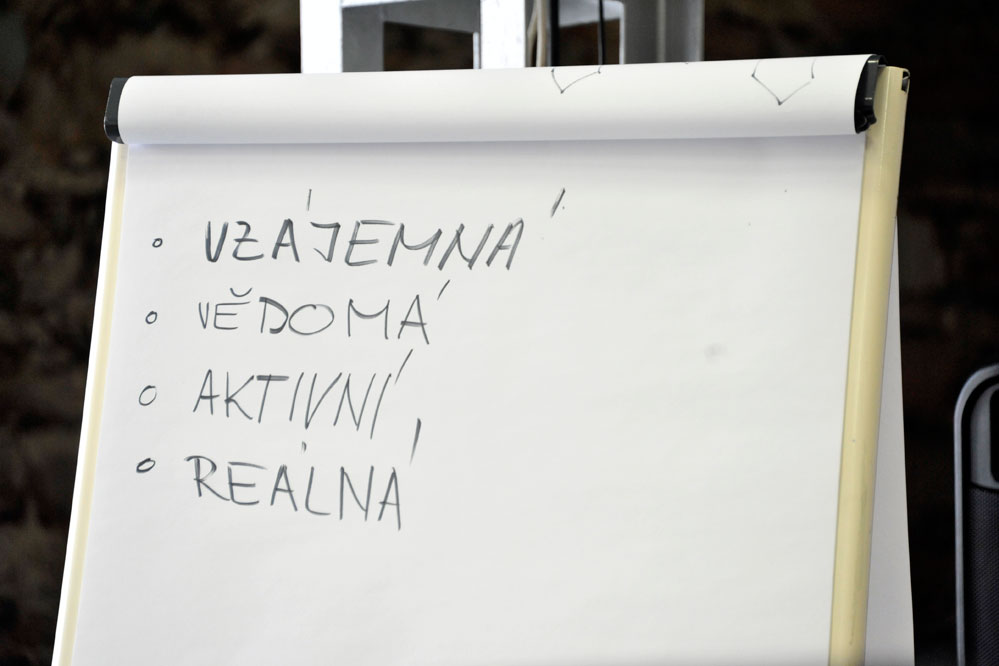 VZÁJEMNÁ
VĚDOMÁ
AKTIVNÍ
REÁLNÁ